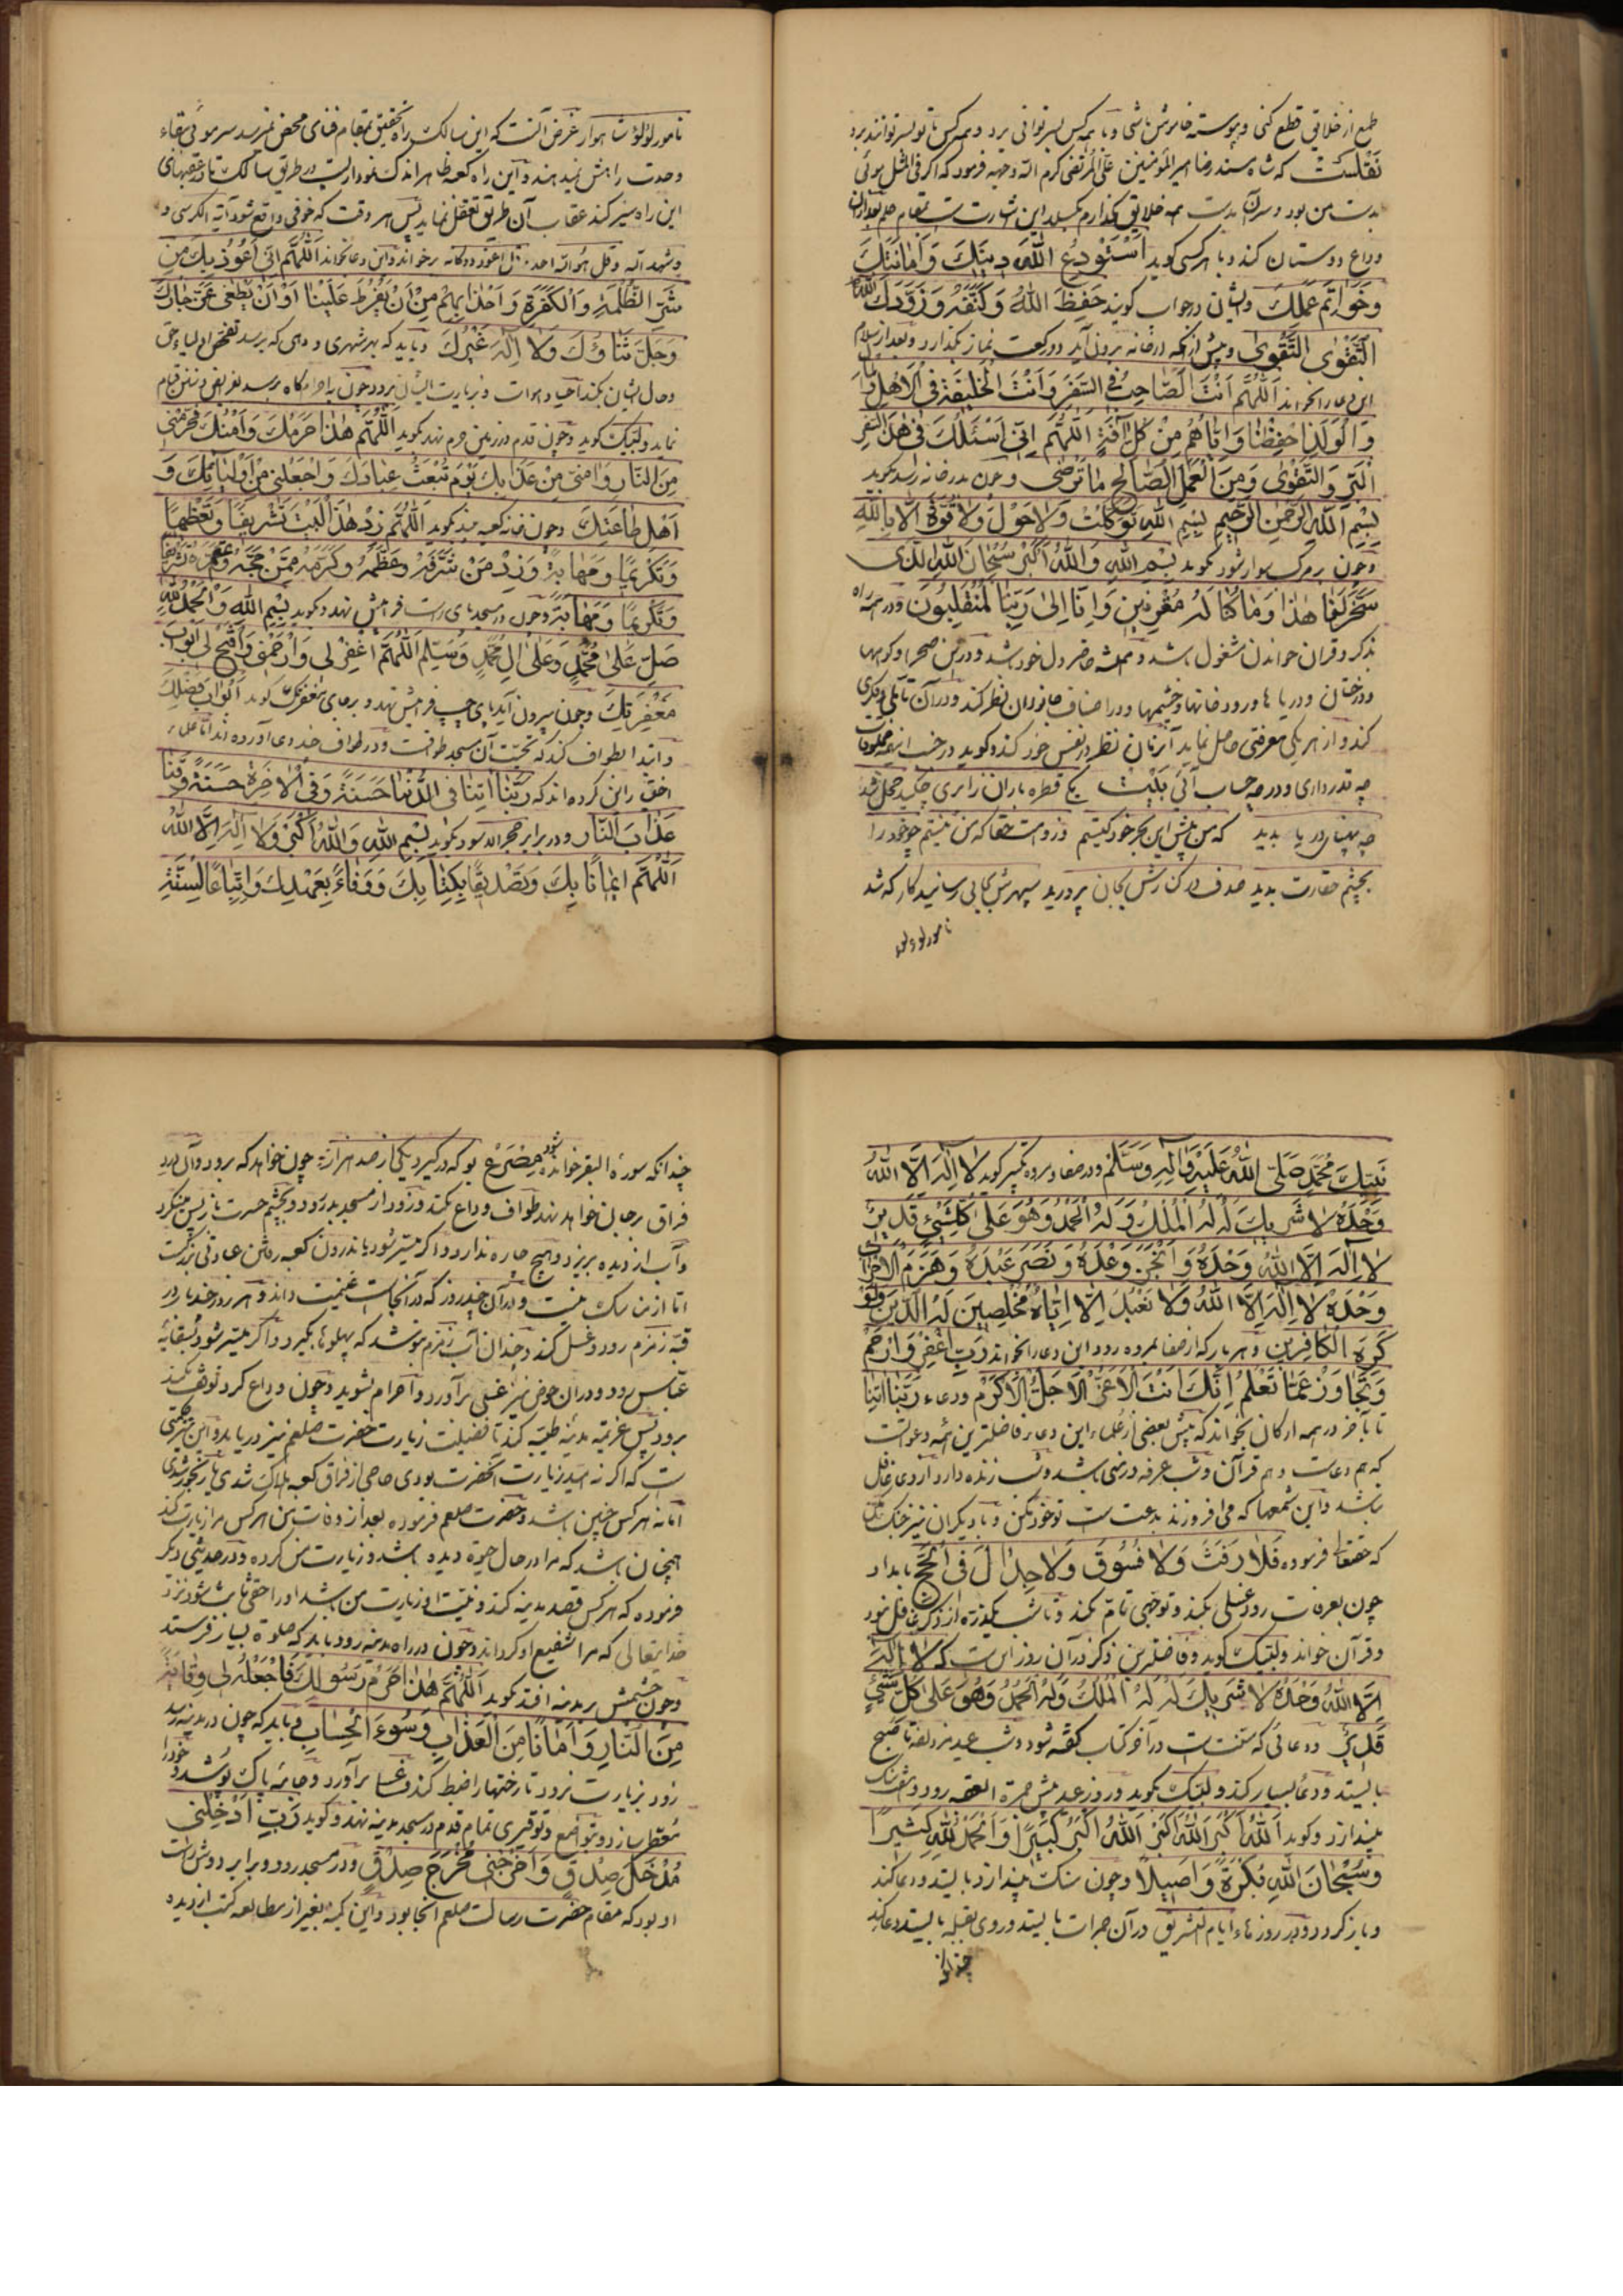 طمع از خلایق قطع کنی و پیوسته خاموش باشی و با همه کس بسر توانی برد و همه کس با تو بسر توانند برد
نقلست که شاه مسند رضا امیرالمؤمنین علی المرتضی کرم الله وجهه فرمود که اگر فی المثل موئی
بدست من بود و سرآن بدست همه خلایق نگذارم بگسلد این اشارتست بمقام حلم بعد ازان
وداع دوستان کند و با هر کسی کوید اَسْتَوْدِعُ اللّٰهَ دِینَكَ وَ اَمَانَتَكَ
وَخَوَاتِمَ عَمَلِكَ و ایشان در جواب کویند حَفِظَ اللّٰهُ وَ كَنَفَهُ وَ زَوَّدَكَ اللّٰهُ
التَّقْوٰی و پیش از آنکه از خانه برون آید دو رکعت نماز بکذارد و بعد از سلام
این دعا را بخواند اَللّٰهُمَّ اَنْتَ الصَّاحِبُ فِی السَّفَرِ وَ اَنْتَ الْخَلِیفَةُ فِی الْاَهْلِ وَ الْمَالِ
وَ الْوَلَدِ اِحْفِظْنَا وَ اِیَّاهُمْ مِنْ كُلِّ آفَةٍ اَللّٰهُمَّ اِنِّی اَسْئَلُكَ فِی هٰذَا السَّفَرِ
الْبِرَّ وَ التَّقْوٰی وَ مِنَ الْعَمَلِ الصَّالِحِ مَا تَرْضٰی و چون بدر خانه رسد بکوید
بِسْمِ اللّٰهِ الرَّحْمٰنِ الرَّحِیمِ بِسْمِ اللّٰهِ تَوَكَّلْتُ وَ لَا حَوْلَ وَ لَا قُوَّةَ اِلَّا بِاللّٰهِ
و چون بر مرکب سوار شود بکوید بِسْمِ اللّٰهِ وَ اللّٰهُ اَكْبَرُ سُبْحَانَ اللّٰهِ الَّذِی
سَخَّرَ لَنَا هٰذَا وَ مَا كُنَّا لَهُ مُقْرِنِینَ وَ اِنَّا اِلٰی رَبِّنَا لَمُنْقَلِبُونَ و در همه راه
بذکر و قران خواندن مشغول باشد و همیشه حاضر دل خود باشد و در صحرا و کوهها
و درختان و دریاها و رودخانها و چشمها و در اصناف جانوران نظر کند و در آن تأملی و فکری
کند و از هر یکی معرفتی حاصل نماید آنزمان نظر در نفس خود کند و کوید در جنب اینهمه مخلوقات
چه قدر داری و در چه حساب آئی بیت یکی قطره باران ز ابری چکید خجل شد
چو پهنای دریا بدید که من پیش این بحر خود کیستم کر اوست حقا که من نیستم چو خود را
بچشم حقارت بدید صدف در کنارش بجان پرورید سپهرش بجایی رسانید کار که شد
نامور لؤلؤ
نامور لؤلؤ شاهوار غرض آنست که این سالک راه تحقیق بمقام فنای محض نمیرسد سر موئی بقاء
وحدت را پیش نمیدهند و این راه کعبه ظاهر اندک نموداریست در طریق سالک تا در عقبهای
این راه سیر کند عقاب آن طریق تعقل نماید پس هر وقت که خوفی واقع شود آیة الکرسی و
و شهد الله و قل هو الله احد و قل اعوذ دوکانه برخواند و این دعا بخواند اَللّٰهُمَّ اِنِّی اَعُوذُ بِكَ مِنْ
شَرِّ الظَّلَمَةِ وَ الْكَفَرَةِ وَ اَحْذَابِهِمْ مِنْ اَنْ یَفْرُطَ عَلَیْنَا اَوْ اَنْ یَطْغٰی عَزَّ جَارُكَ
وَ جَلَّ ثَنَاؤُكَ وَ لَا اِلٰهَ غَیْرُكَ و باید که بهر شهری و دهی که برسد تفحص اولیاء حق
و حال ایشان بکند احیا و اموات و بزیارت ایشان برود چون باحرامکاه برسد بفرایض و سنن قیام
نماید و لبیک کوید و چون قدم در زمین حرم نهد بکوید اَللّٰهُمَّ هٰذَا حَرَمُكَ وَ اَمْنُكَ فَحَرِّمْنِی
مِنَ النَّارِ وَ اٰمِنِّی مِنْ عَذَابِكَ یَوْمَ تَبْعَثُ عِبَادَكَ وَ اجْعَلْنِی مِنْ اَوْلِیَائِكَ وَ
اَهْلِ طَاعَتِكَ و چون خانه کعبه بیند بکوید اَللّٰهُمَّ زِدْ هٰذَا الْبَیْتَ تَشْرِیفًا وَ تَعْظِیمًا
وَ تَكْرِیمًا وَ مَهَابَةً وَ زِدْ مَنْ شَرَّفَهُ وَ عَظَّمَهُ وَ كَرَّمَهُ مِمَّنْ حَجَّهُ وَ اعْتَمَرَهُ تَشْرِیفًا
وَ تَكْرِیمًا وَ مَهَابَةً و چون در مسجد پای راست فرا پیش نهد و بکوید بِسْمِ اللّٰهِ وَ الْحَمْدُ لِلّٰهِ
صَلِّ عَلٰی مُحَمَّدٍ وَ عَلٰی اٰلِ مُحَمَّدٍ وَ سَلِّمْ اَللّٰهُمَّ اغْفِرْ لِی وَ ارْحَمْنِی وَ افْتَحْ لِی اَبْوَابَ
مَغْفِرَتِكَ و چون بیرون آید پای چپ فرا پیش نهد و بر جای مغفرتک کوید اَبْوَابَ فَضْلِكَ
و ابتدا بطواف کند که تحیت آن مسجد طوافست و در طواف چند دعا آورده اند اما علماء
اختیار این کرده اند که رَبَّنَا اٰتِنَا فِی الدُّنْیَا حَسَنَةً وَ فِی الْاٰخِرَةِ حَسَنَةً وَ قِنَا
عَذَابَ النَّارِ و در برابر حجر الاسود بکوید بِسْمِ اللّٰهِ وَ اللّٰهُ اَكْبَرُ وَ لَا اِلٰهَ اِلَّا اللّٰهُ
اَللّٰهُمَّ اِیمَانًا بِكَ وَ تَصْدِیقًا بِكِتَابِكَ وَ وَفَاءً بِعَهْدِكَ وَ اتِّبَاعًا لِسُنَّةِ
نَبِیِّكَ مُحَمَّدٍ صَلَّی اللّٰهُ عَلَیْهِ وَ اٰلِهِ وَ سَلَّمَ و در صفا و مروه تکبیر کوید لَا اِلٰهَ اِلَّا اللّٰهُ
وَحْدَهُ لَا شَرِیكَ لَهُ لَهُ الْمُلْكُ وَ لَهُ الْحَمْدُ وَ هُوَ عَلٰی كُلِّ شَیْءٍ قَدِیرٌ
لَا اِلٰهَ اِلَّا اللّٰهُ وَحْدَهُ وَ اَنْجَزَ وَعْدَهُ وَ نَصَرَ عَبْدَهُ وَ هَزَمَ الْاَحْزَابَ
وَحْدَهُ لَا اِلٰهَ اِلَّا اللّٰهُ وَ لَا نَعْبُدُ اِلَّا اِیَّاهُ مُخْلِصِینَ لَهُ الدِّینَ وَ لَوْ
كَرِهَ الْكَافِرِینَ و هر بار که از صفا بمروه رود این دعا را بخواند رَبِّ اغْفِرْ وَ ارْحَمْ
وَ تَجَاوَزْ عَمَّا تَعْلَمُ اِنَّكَ اَنْتَ الْاَعَزُّ الْاَجَلُّ الْاَكْرَمُ و دعاء رَبَّنَا اٰتِنَا
تا بآخر در همه ارکان بخواند که پیش بعضی از علماء این دعا فاضلترین همه دعواتست
که هم دعاست و هم قرآن و شب عرفه در منی باشد و شب زنده دارد از دعا غافل
نباشد و این شمعها که می افروزند بدعت است تو خود مکن و با دیکران نیز جنک مکن
که حقتعالی فرموده فَلَا رَفَثَ وَ لَا فُسُوقَ وَ لَا جِدَالَ فِی الْحَجِّ بامداد
چون بعرفات رود غسلی بکند و توجهی تام بکند و تا شب یکذره از ذکر غافل نبود
و قرآن خواند و لبیک کوید و فاضلترین ذکر در آن روز اینست که لَا اِلٰهَ
اِلَّا اللّٰهُ وَحْدَهُ لَا شَرِیكَ لَهُ لَهُ الْمُلْكُ وَ لَهُ الْحَمْدُ وَ هُوَ عَلٰی كُلِّ شَیْءٍ
قَدِیرٌ و دعائی که سنت است در آخر کتاب کفته شود و شب عید بمزدلفه تا صبح
بایستد و دعا بسیار کند و لبیک بکوید و روز عید پیش جمرة العقبه رود و هفت سنک
بیندازد و کوید اَللّٰهُ اَكْبَرُ اَللّٰهُ اَكْبَرُ اَللّٰهُ اَكْبَرُ كَبِیرًا وَ الْحَمْدُ لِلّٰهِ كَثِیرًا
وَ سُبْحَانَ اللّٰهِ بُكْرَةً وَ اَصِیلًا و چون سنک بیندازد بایستد و دعا کند
و باز کردد و در روزهاء ایام تشریق در آن جمرات بایستد و روی بقبله بایستد دعا کند
چندانکه
چندانکه سورة البقر خوانده شود مصرع بو که در گیرد یکی از صد هزار چون خواهد که برود و آن درد
فراق بر جان خواهد نهد طواف وداع بکند و زود از مسجد بدر رود و بچشم حسرت باز پس مینکرد
و آب از دیده بریزد و هیچ چاره ندارد و اگر میسر شود باندرون کعبه رفتن عادتی بزرکست
اما از مناسک نیست و در آن چند روز که در آنجاست غنیمت داند و هر روز چند بار در
قبه زمزم رود و غسل کند و چندان آب زمزم نوشد که پهلوها بگیرد و اگر میسر شود بسقایه
عباس رود و در ان حوض نیز غسلی برآورد و احرام بشوید و چون وداع کرد توقف نکند
برود پس عزیمت مدینه طیبه کند تا فضیلت زیارت حضرت صلعم نیز دریابد و این حکمتی
ست که اگر نه امید زیارت آنحضرت بودی حاجی از فراق کعبه هلاک شدی یا رنجور شدی
اما نه هر کس چنین باشد و حضرت صلعم فرموده بعد از وفات من هر کس مرا زیارت کند
همچنان باشد که مرا در حال حیوة دیده باشد و زیارت من کرده و در حدیثی دیکر
فرموده که هر کس قصد مدینه کند و نیت او زیارت من باشد او را حقی ثابت شود نزد
خدایتعالی که مرا شفیع او کرداند و چون در راه مدینه رود باید که صلوة بسیار فرستد
و چون چشمش بر مدینه افتد بکوید اَللّٰهُمَّ هٰذَا حَرَمُ رَسُولِكَ فَاجْعَلْهُ لِی وِقَایَةً
مِنَ النَّارِ وَ اَمَانًا مِنَ الْعَذَابِ وَ سُوءَ الْحِسَابِ و باید که چون در مدینه رسد
زود بزیارت نرود تا رختها را ضبط کند و غسل برآورد و جامه پاک پوشد و خود را
معطر سازد و بتواضع و توقیری تمام قدم در مسجد مدینه نهد و کوید رَبِّ اَدْخِلْنِی
مُدْخَلَ صِدْقٍ وَ اَخْرِجْنِی مُخْرَجَ صِدْقٍ و در مسجد رود و برابر دوش راست
او بود که مقام حضرت رسالت صلعم آنجا بود و این کمینه بغیر از مطالعه کتب از دیده